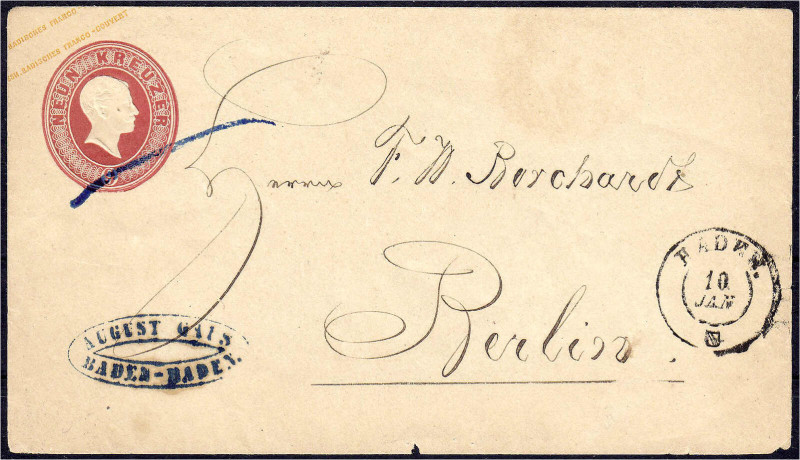 BADISCHES FRANCO
BADISCHES FRANCO-COUVERT
NEUN KREUZER
9
Herrn F. W. Borchardt
Berlin.
BADEN.
10
JAN
AUGUST GAUS
BADEN-BADEN.